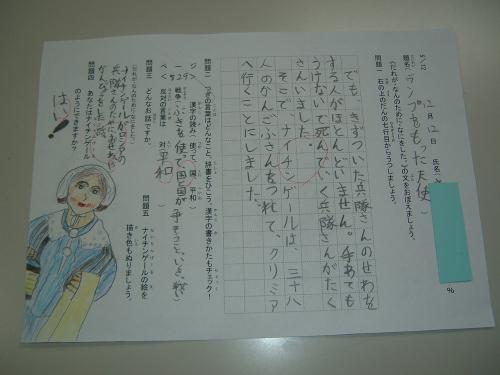 12月12日 氏名
題名（ランプをもった天使）
（だれが・なんのために・なにをした。）の文をおぼえましょう。
問題一 右の上のだんの七行目からうつしましょう。
でも、きずついた兵隊さんのせわを
する人がほとんどいません。手あても
うけないで死んでいく兵隊さんがたく
さんいました。
そこで、ナイチンゲールは、三十八
人のかんごふさんをつれて、クリミア
へ行くことにしました。
問題二 次の言葉はどんなこと、辞書をひこう。漢字の書きかたもチェック！
ページ 漢字の読み 使って、国、平和
＜529＞ 戦争（ぶきを使って国と国が争うこと。いくさ。戦い）
反対の言葉は 対 平和
問題三 どんなお話ですか。
（だれが・なんのために・なにをした）
ナイチンゲールが
兵隊さんの
かんびょうをした話。
問題四 あなたはナイチンゲール
のようにできますか？
はい！
問題五 ナイチンゲールの絵を
描き色もぬりましょう。
96